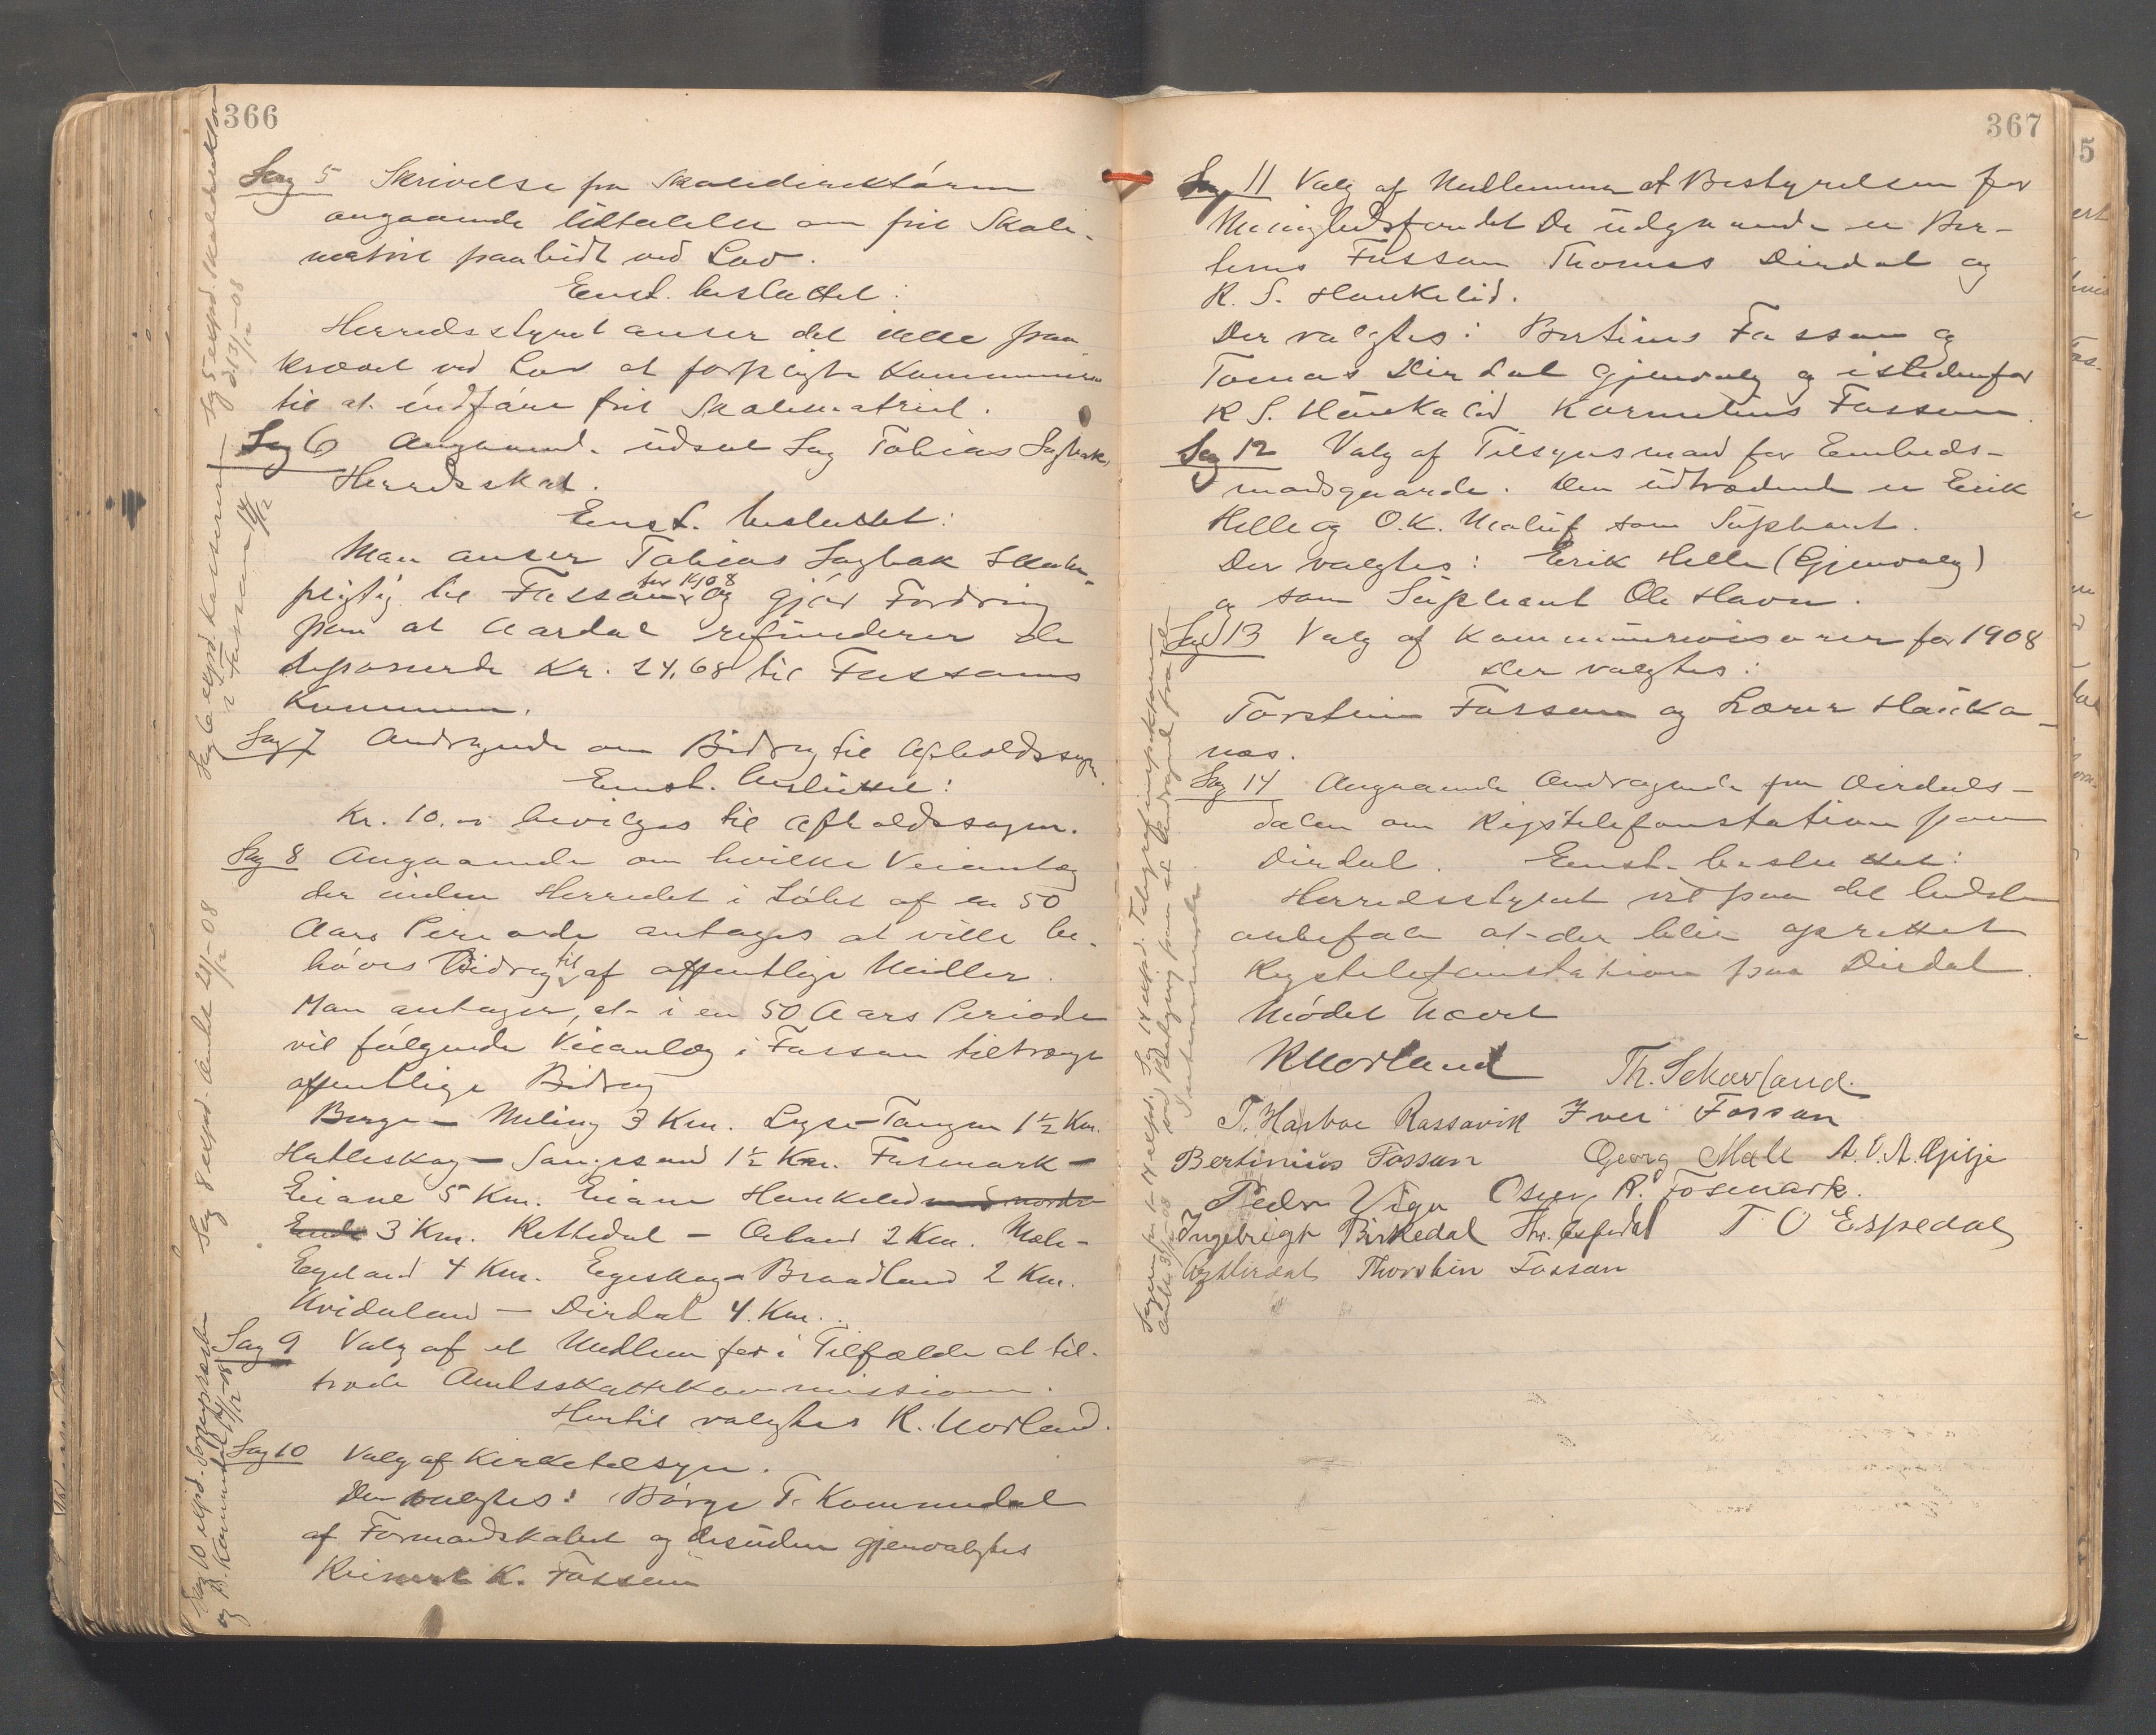 366
Sag 5 Skrivelse fra Skoledirektøren
angaaende Udtalelse om frit Skole-
matriel paabudt ved Lov.
Enst. besluttet:
Herredsstyret anser det ikke paa-
krævet ved Lov at forpligte Kommunen
til at indføre frit Skolematriel.
Sag 6 Angaaende udsat Sag Tobias Sagbak
Herredsskat.
Enst. besluttet:
Man anser Tobias Sagbak Skatte-
pligtig til Fossan for 1908 og gjør Fordring
paa at Aardal refunderer de
deponerede Kr. 24,68 til Fossans
Kommune.
Sag 7 Andragende om Bidrag til Afholdssagen
Enst. besluttet:
Kr. 10.00 bevilges til Afholdssagen.
Sag 8 Angaaende om hvilke Veianlæg
der inden Herredet i Løbet af en 50
Aars Periode antages at ville be-
høves Bidrag til af offentlige Midler.
Man antager, at i en 50 Aars Periode
vil følgende Veianlæg i Fossan tiltrænge
offentlige Bidrag
Berge - Meling 3 Km. Lyse - Tangen 1½ Km.
Hatleskog - Songesand 1½ Km. Fosmark -
Eiane 5 Km. Eiane Haukelid med nordre
Ende 3 Km. Rettedal - Østland 2 Km. Mele-
Egeland 4 Km. Egeskog - Braadland 2 Km.
Kvidaland - Dirdal 4 Km.
Sag 9 Valg af et Medlem for i Tilfælde at til-
træde Amtsskattekommissionen.
Hertil valgtes R. Norland.
Sag 10 Valg af Kirketilsyn.
Der valgtes: Børge T. Kommedal
af Formandskabet og desuden gjenvalgtes
Reinert K. Fossan
Sag 5 expd. Skoledirektøren
d. 31/12-08
Sag 6 expd. Kassereren
i Fossan 14/12
Sag 8 expd. Amtet 21/12-08
Sag 10 expd. Sognepresten
og B. Kommedal 14/12-08
367
Sag 11 Valg af Medlemmer af Bestyrelsen for
Menighedsfondet De udgaaende er Ber-
tinius Fossan Thomas Dirdal og
R. S. Haukelid.
Der valgtes: Bertinius Fossan og
Tomas Dirdal Gjenvalg og istedenfor
R S. Haukalid Kornelius Fossan.
Sag 12 Valg af Tilsynsmand for Embeds-
mandsgaarde. Den udtrædende er Erik
Helle og O. K. Meling som Supleant.
Der valgtes: Erik Helle (Gjenvalg)
og som Supleant Ole Havn.
Sag 13 Valg af Kommunerevisorer for 1908
Der valgtes:
Torstein Fossan og Lærer Hauka-
næs.
Sag 14 Angaaende Andragende fra Dirdals-
dalen om Rigstelefonstation paa
Dirdal. Enst. besluttet:
Herredsstyret vil paa det bedste
anbefale at der blir oprettet
Rigstelefonstation paa Dirdal.
Mødet hævet
R Norland Th. Skavland.
T. Harboe Rossavik Iver Fossan
Bertinius Fossan Georg Mæle A. O. A. Gilje
Peder Viga Osm. R. Fosmark.
Ingebrigt Birkedal Thr. Espedal T O Espedal
Thorstin Fossan
Sag 14 expd. Telegrafinspektøren